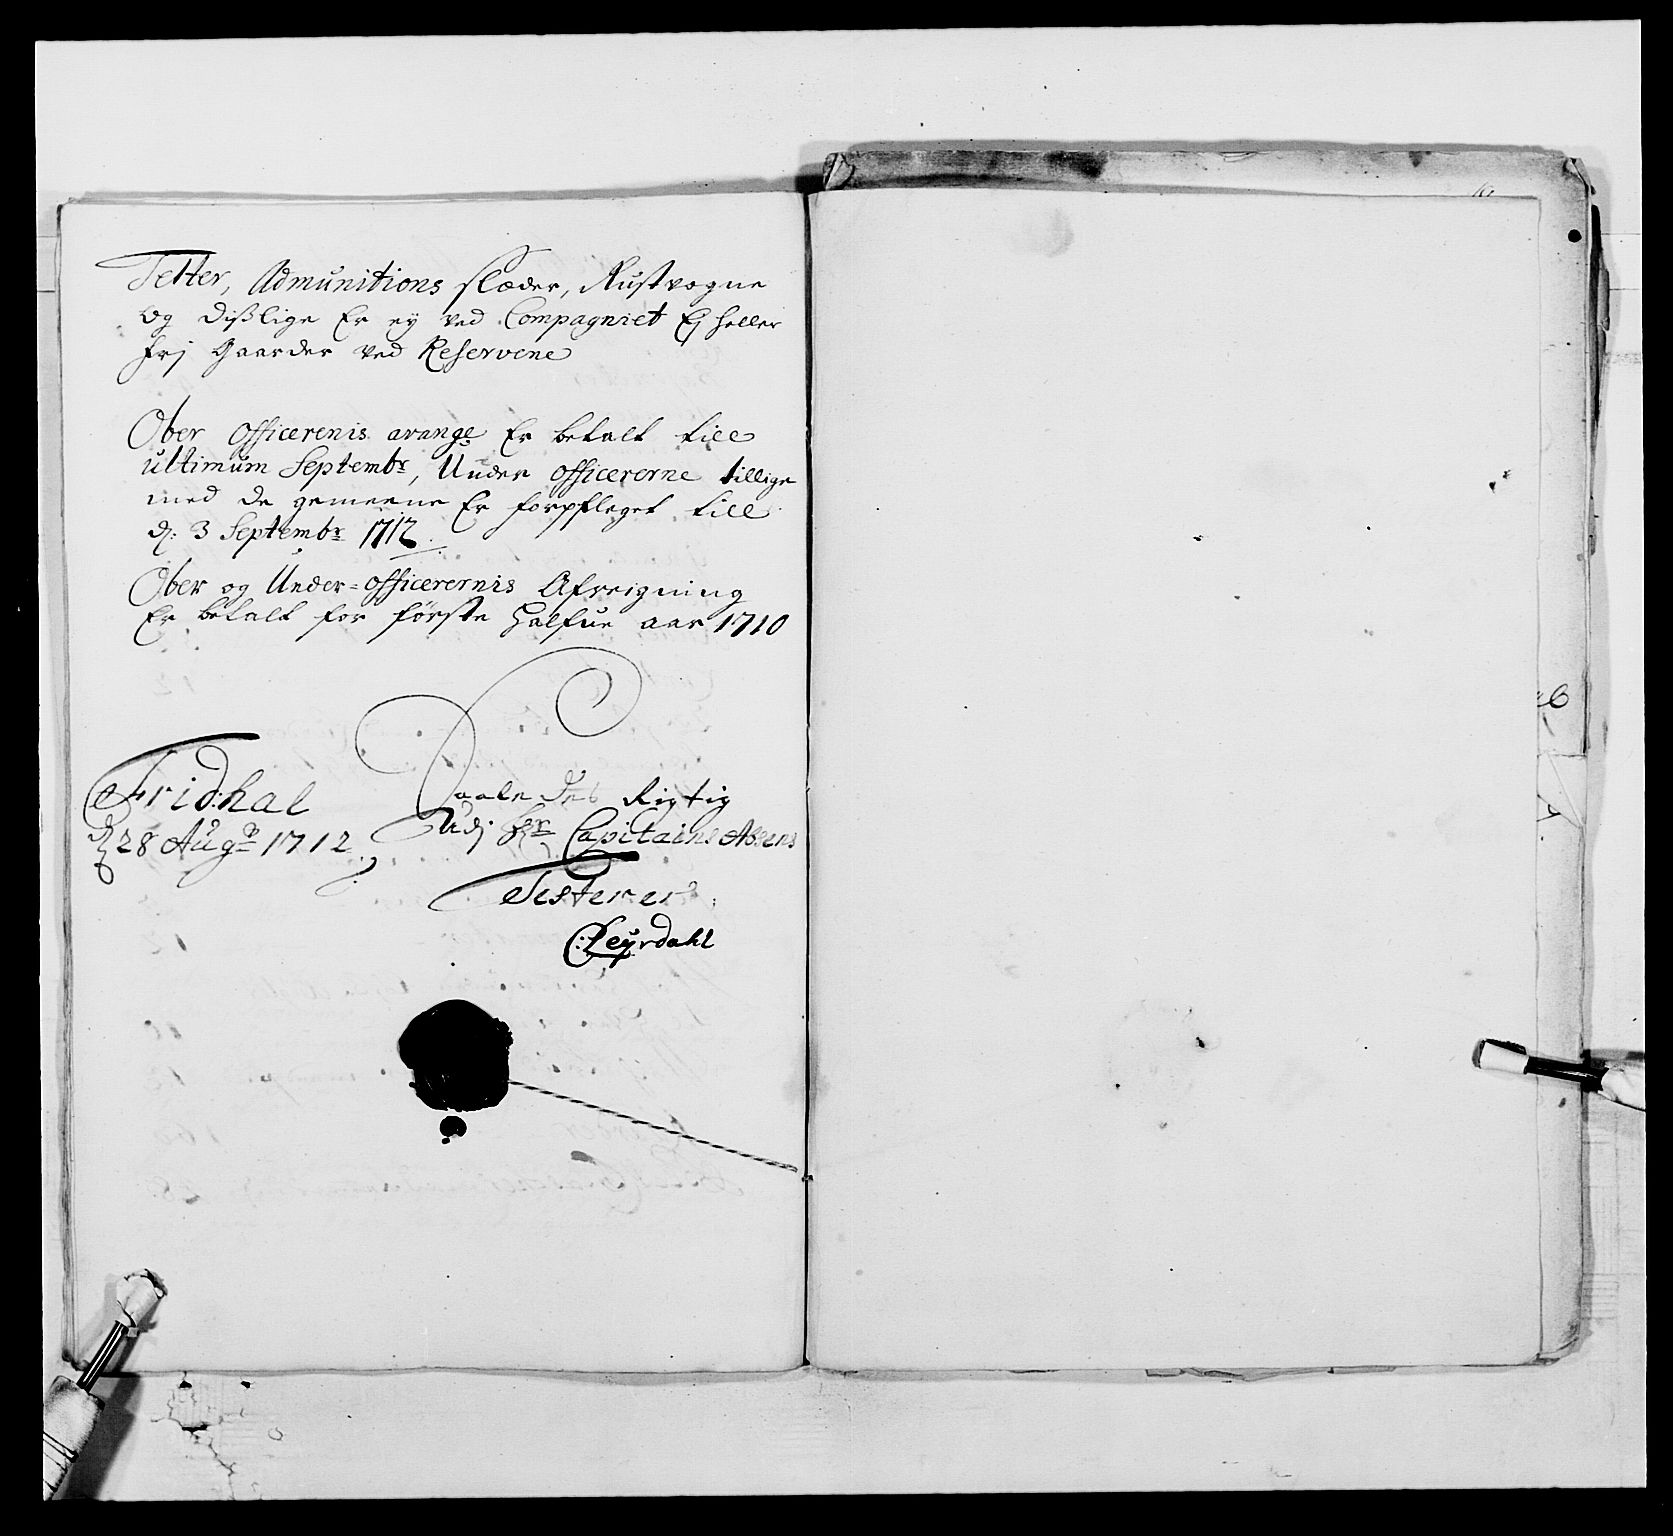 Telter, Admunitions slæder, Rustvogne
og dißlige Er ey ved Compagniet Ej heller
frj Gaarder ved Reservene
Ober Officerenis avange Er betalt till
ultimum Septembr, Under officererne tillige
med de gemeene Er forpfleget till
d: 3 Septembr 1712.
Ober og Under-officerernis Afreigning
Er betalt for første Halfue aar 1710
Fridhal
d 28 Augˢᵗ 1712
Saaledes Rigtig
Udj Hr Capitains Absens
Testerer
Leyrdahl